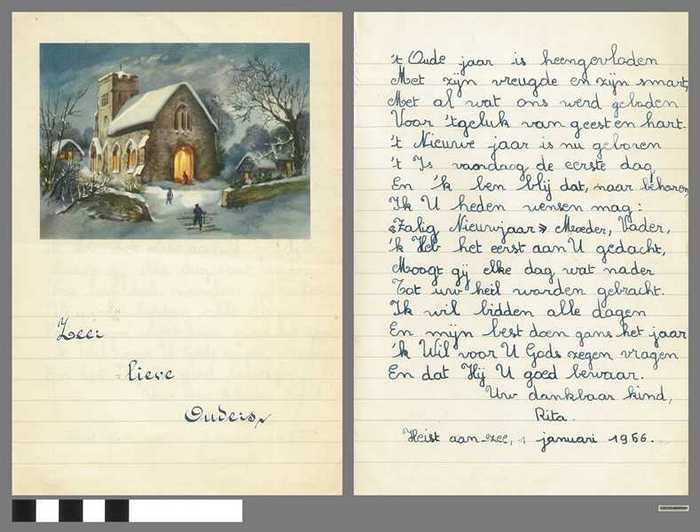 Zeer
lieve
Ouders,
't Oude jaar is heengevloden
Met zijn vreugde en zijn smart,
Met al wat ons werd geboden
Voor 't geluk van geest en hart.
't Nieuwe jaar is nu geboren
't Is vandaag de eerste dag,
En 'k ben blij dat, naar behoren,
Ik U heden wensen mag:
«Zalig Nieuwjaar» Moeder, Vader,
'k Heb het eerst aan U gedacht,
Moogt gij elke dag wat nader
Tot uw heil worden gebracht.
Ik wil bidden alle dagen
En mijn best doen gans het jaar
'k Wil voor U Gods zegen vragen
En dat Hij U goed bewaar.
Uw dankbaar kind,
Rita.
Heist aan zee, 1 januari 1966.